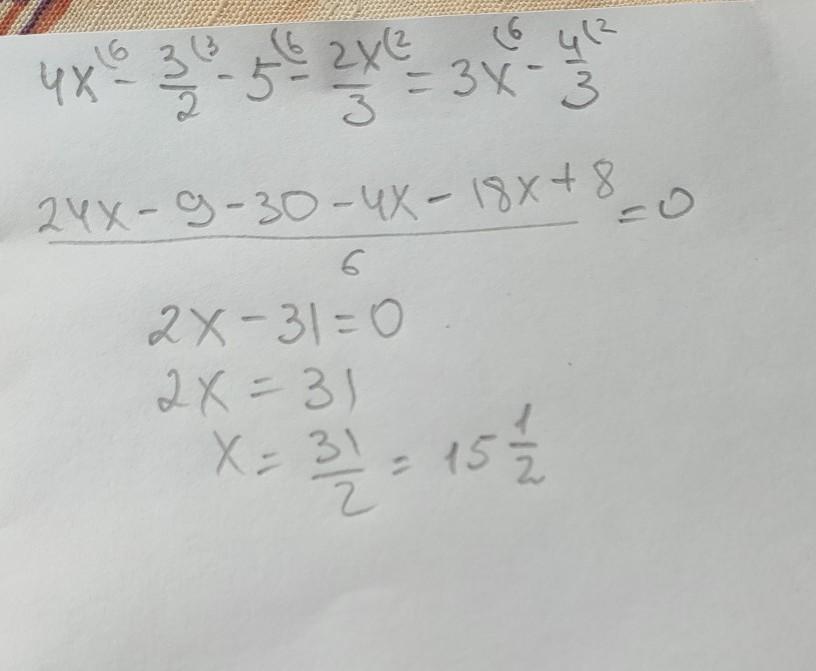 4x⁽⁶ - 3/2⁽³ - 5⁽⁶ - 2x/3⁽² = 3x⁽⁶ - 4/3⁽²
(24x - 9 - 30 - 4x - 18x + 8)/6 = 0
2x - 31 = 0
2x = 31
x = 31/2 = 15 1/2